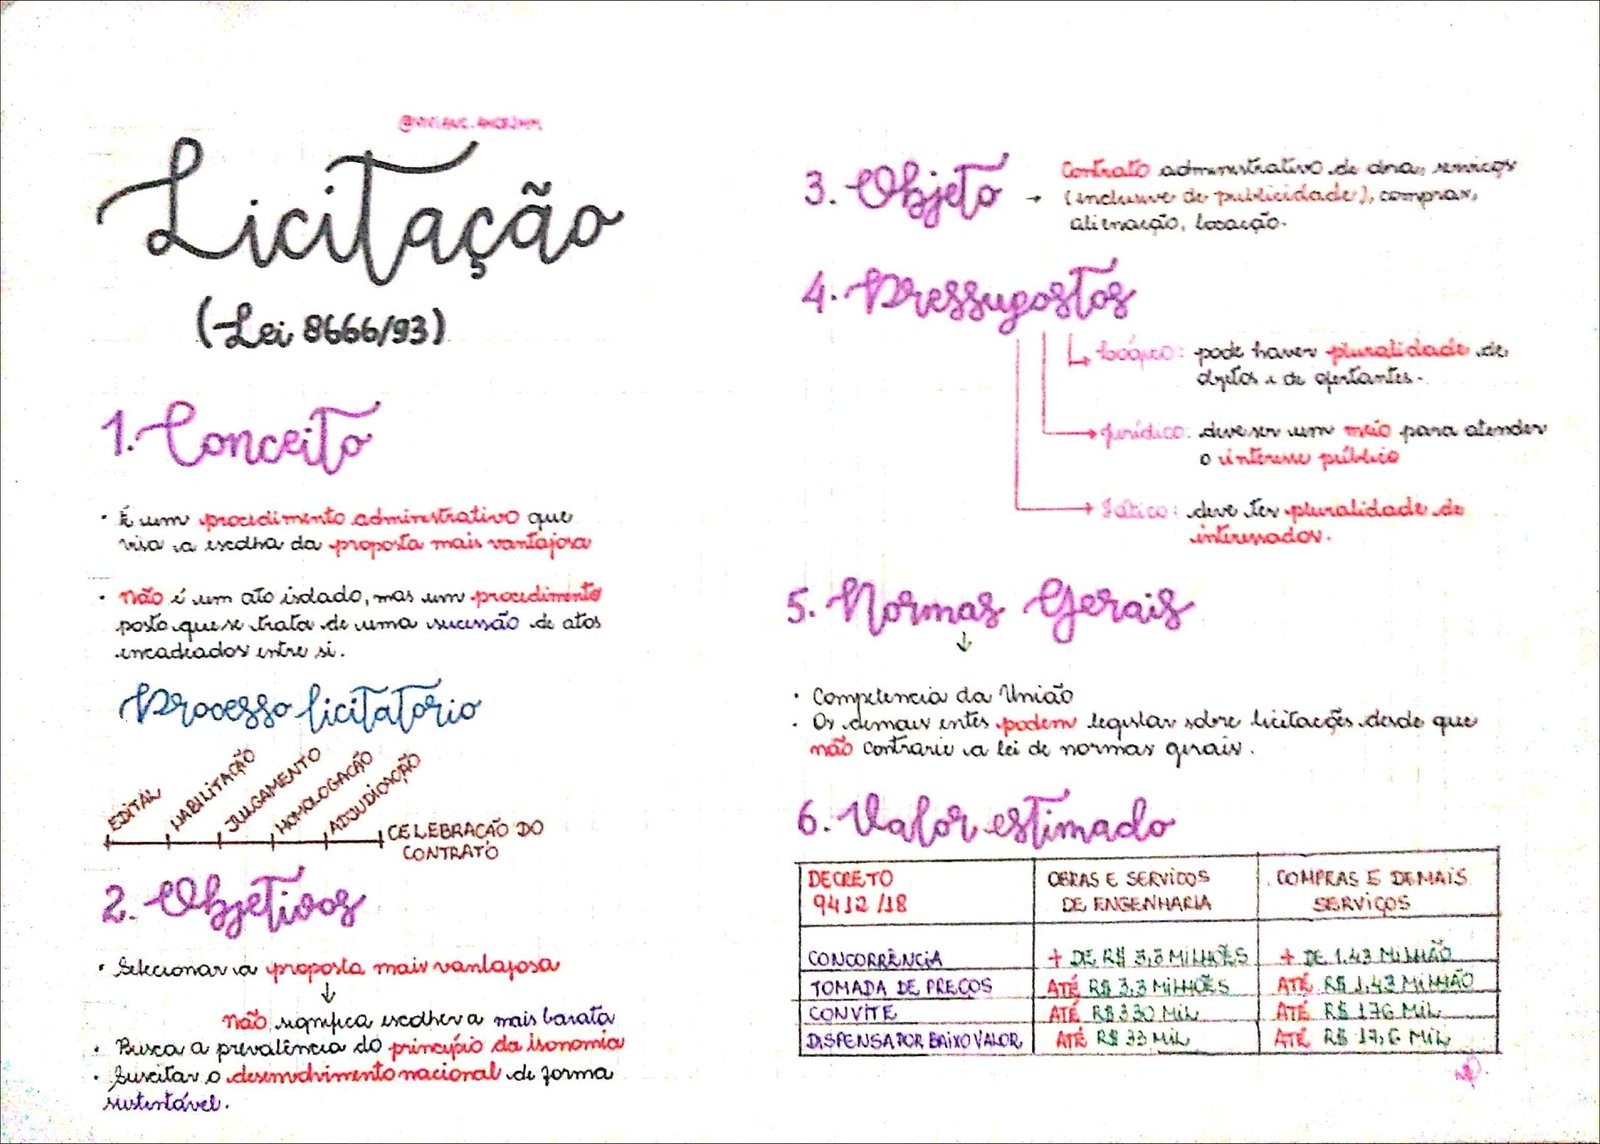 Licitação
(Lei 8666/93)
1. Conceito
• É um procedimento administrativo que
visa a escolha da proposta mais vantajosa
• Não é um ato isolado, mas um procedimento
posto que se trata de uma sucessão de atos
encadeados entre si.
Processo licitatório
EDITAL
HABILITAÇÃO
JULGAMENTO
HOMOLOGAÇÃO
ADJUDICAÇÃO
CELEBRAÇÃO DO
CONTRATO
2. Objetivos
• Selecionar a proposta mais vantajosa
↓
Não significa escolher a mais barata
• Busca a prevalência do princípio da isonomia
• Suscitar o desenvolvimento nacional de forma
sustentável.
3. Objeto → Contrato administrativo de obra, serviços
(inclusive de publicidade), compras,
alienação, locação.
4. Pressupostos
lógico: pode haver pluralidade de
objetos e de ofertantes.
jurídico: deve ser um meio para atender
o interesse público
fático: deve ter pluralidade de
interessados.
5. Normas Gerais
↓
• Competencia da União
• Os demais entes podem legislar sobre licitações desde que
não contrarie a lei de normas gerais.
6. Valor estimado
DECRETO
9412/18
OBRAS E SERVIÇOS
DE ENGENHARIA
COMPRAS E DEMAIS
SERVIÇOS
CONCORRÊNCIA + DE R$ 3,3 MILHÕES + DE 1,43 MILHÃO
TOMADA DE PREÇOS ATÉ R$ 3,3 MILHÕES ATÉ R$ 1,43 MILHÃO
CONVITE ATÉ R$ 330 MIL ATÉ R$ 176 MIL
DISPENSA POR BAIXO VALOR ATÉ R$ 33 MIL ATÉ R$ 17,6 MIL